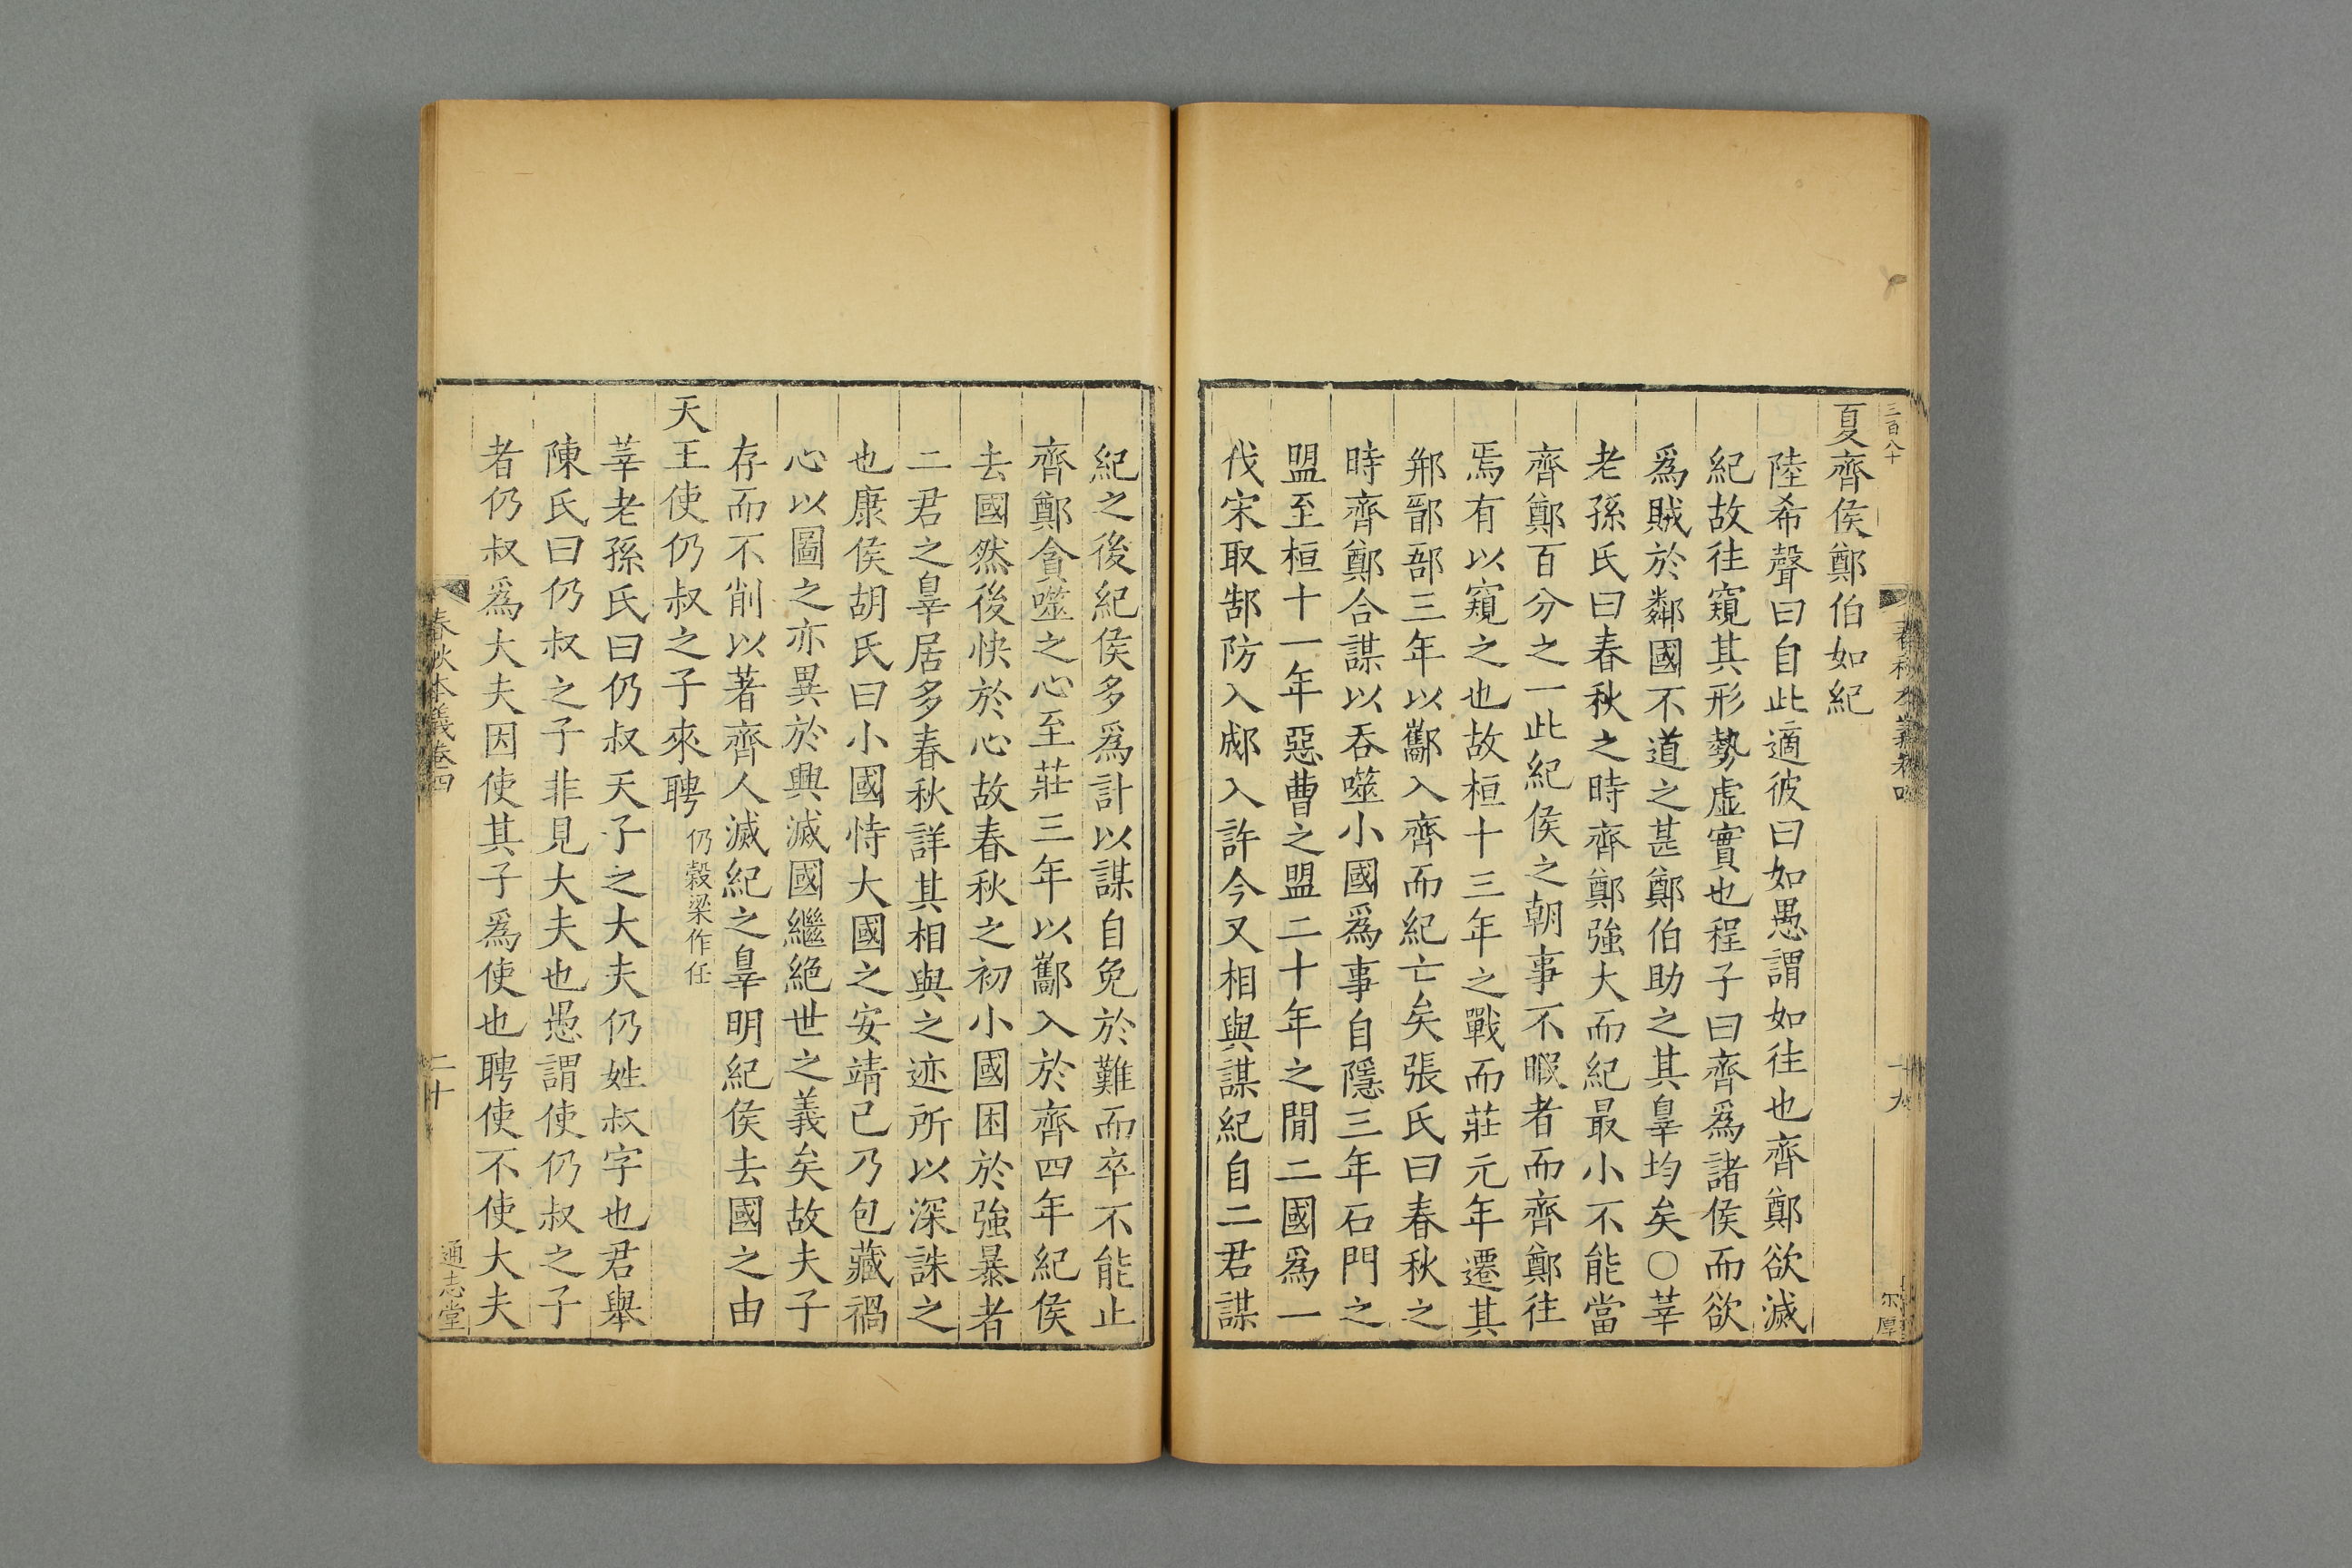 三百八十
夏齊侯鄭伯如紀
陸希聲曰自此適彼曰如愚謂如往也齊鄭欲滅
紀故往窺其形勢虛實也程子曰齊爲諸侯而欲
爲賊於鄰國不道之甚鄭伯助之其辠均矣○莘
老孫氏曰春秋之時齊鄭強大而紀最小不能當
齊鄭百分之一此紀侯之朝事不暇者而齊鄭往
焉有以窺之也故桓十三年之戰而莊元年遷其
郱鄑郚三年以酅入齊而紀亡矣張氏曰春秋之
時齊鄭合謀以吞噬小國爲事自隱三年石門之
盟至桓十一年惡曹之盟二十年之閒二國爲一
伐宋取郜防入郕入許今又相與謀紀自二君謀
紀之後紀侯多爲計以謀自免於難而卒不能止
齊鄭貪噬之心至莊三年以酅入於齊四年紀侯
去國然後快於心故春秋之初小國困於強暴者
二君之辠居多春秋詳其相與之迹所以深誅之
也康侯胡氏曰小國恃大國之安靖已乃包藏禍
心以圖之亦異於興滅國繼絕世之義矣故夫子
存而不削以著齊人滅紀之辠明紀侯去國之由
天王使仍叔之子來聘仍穀梁作任
莘老孫氏曰仍叔天子之大夫仍姓叔字也君舉
陳氏曰仍叔之子非見大夫也愚謂使仍叔之子
者仍叔爲大夫因使其子爲使也聘使不使大夫
春秋本義卷四
二十
通志堂